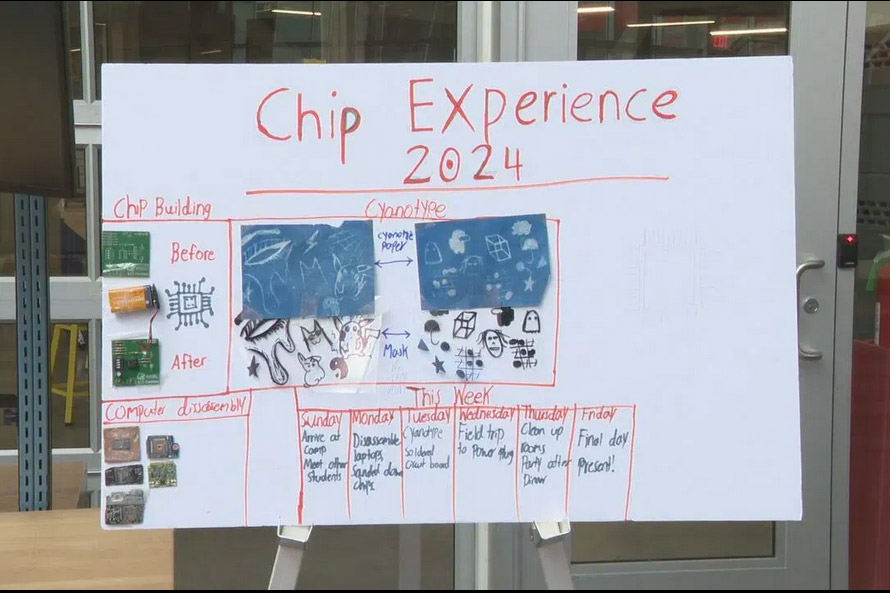 Chip Experience
2024
Chip Building
Cyanotype
Before
After
cyanotype
paper
Mask
Computer disassembly
This Week
Sunday
Arrive at
camp
Meet other
students
Monday
Disassemble
laptops
Sanded down
chips
Tuesday
Cyanotype
Soldered
Circuit board
Wednesday
Field trip
to Power Plug
Thursday
Clean up
rooms
Party after
Dinner
Friday
Final day
Present!